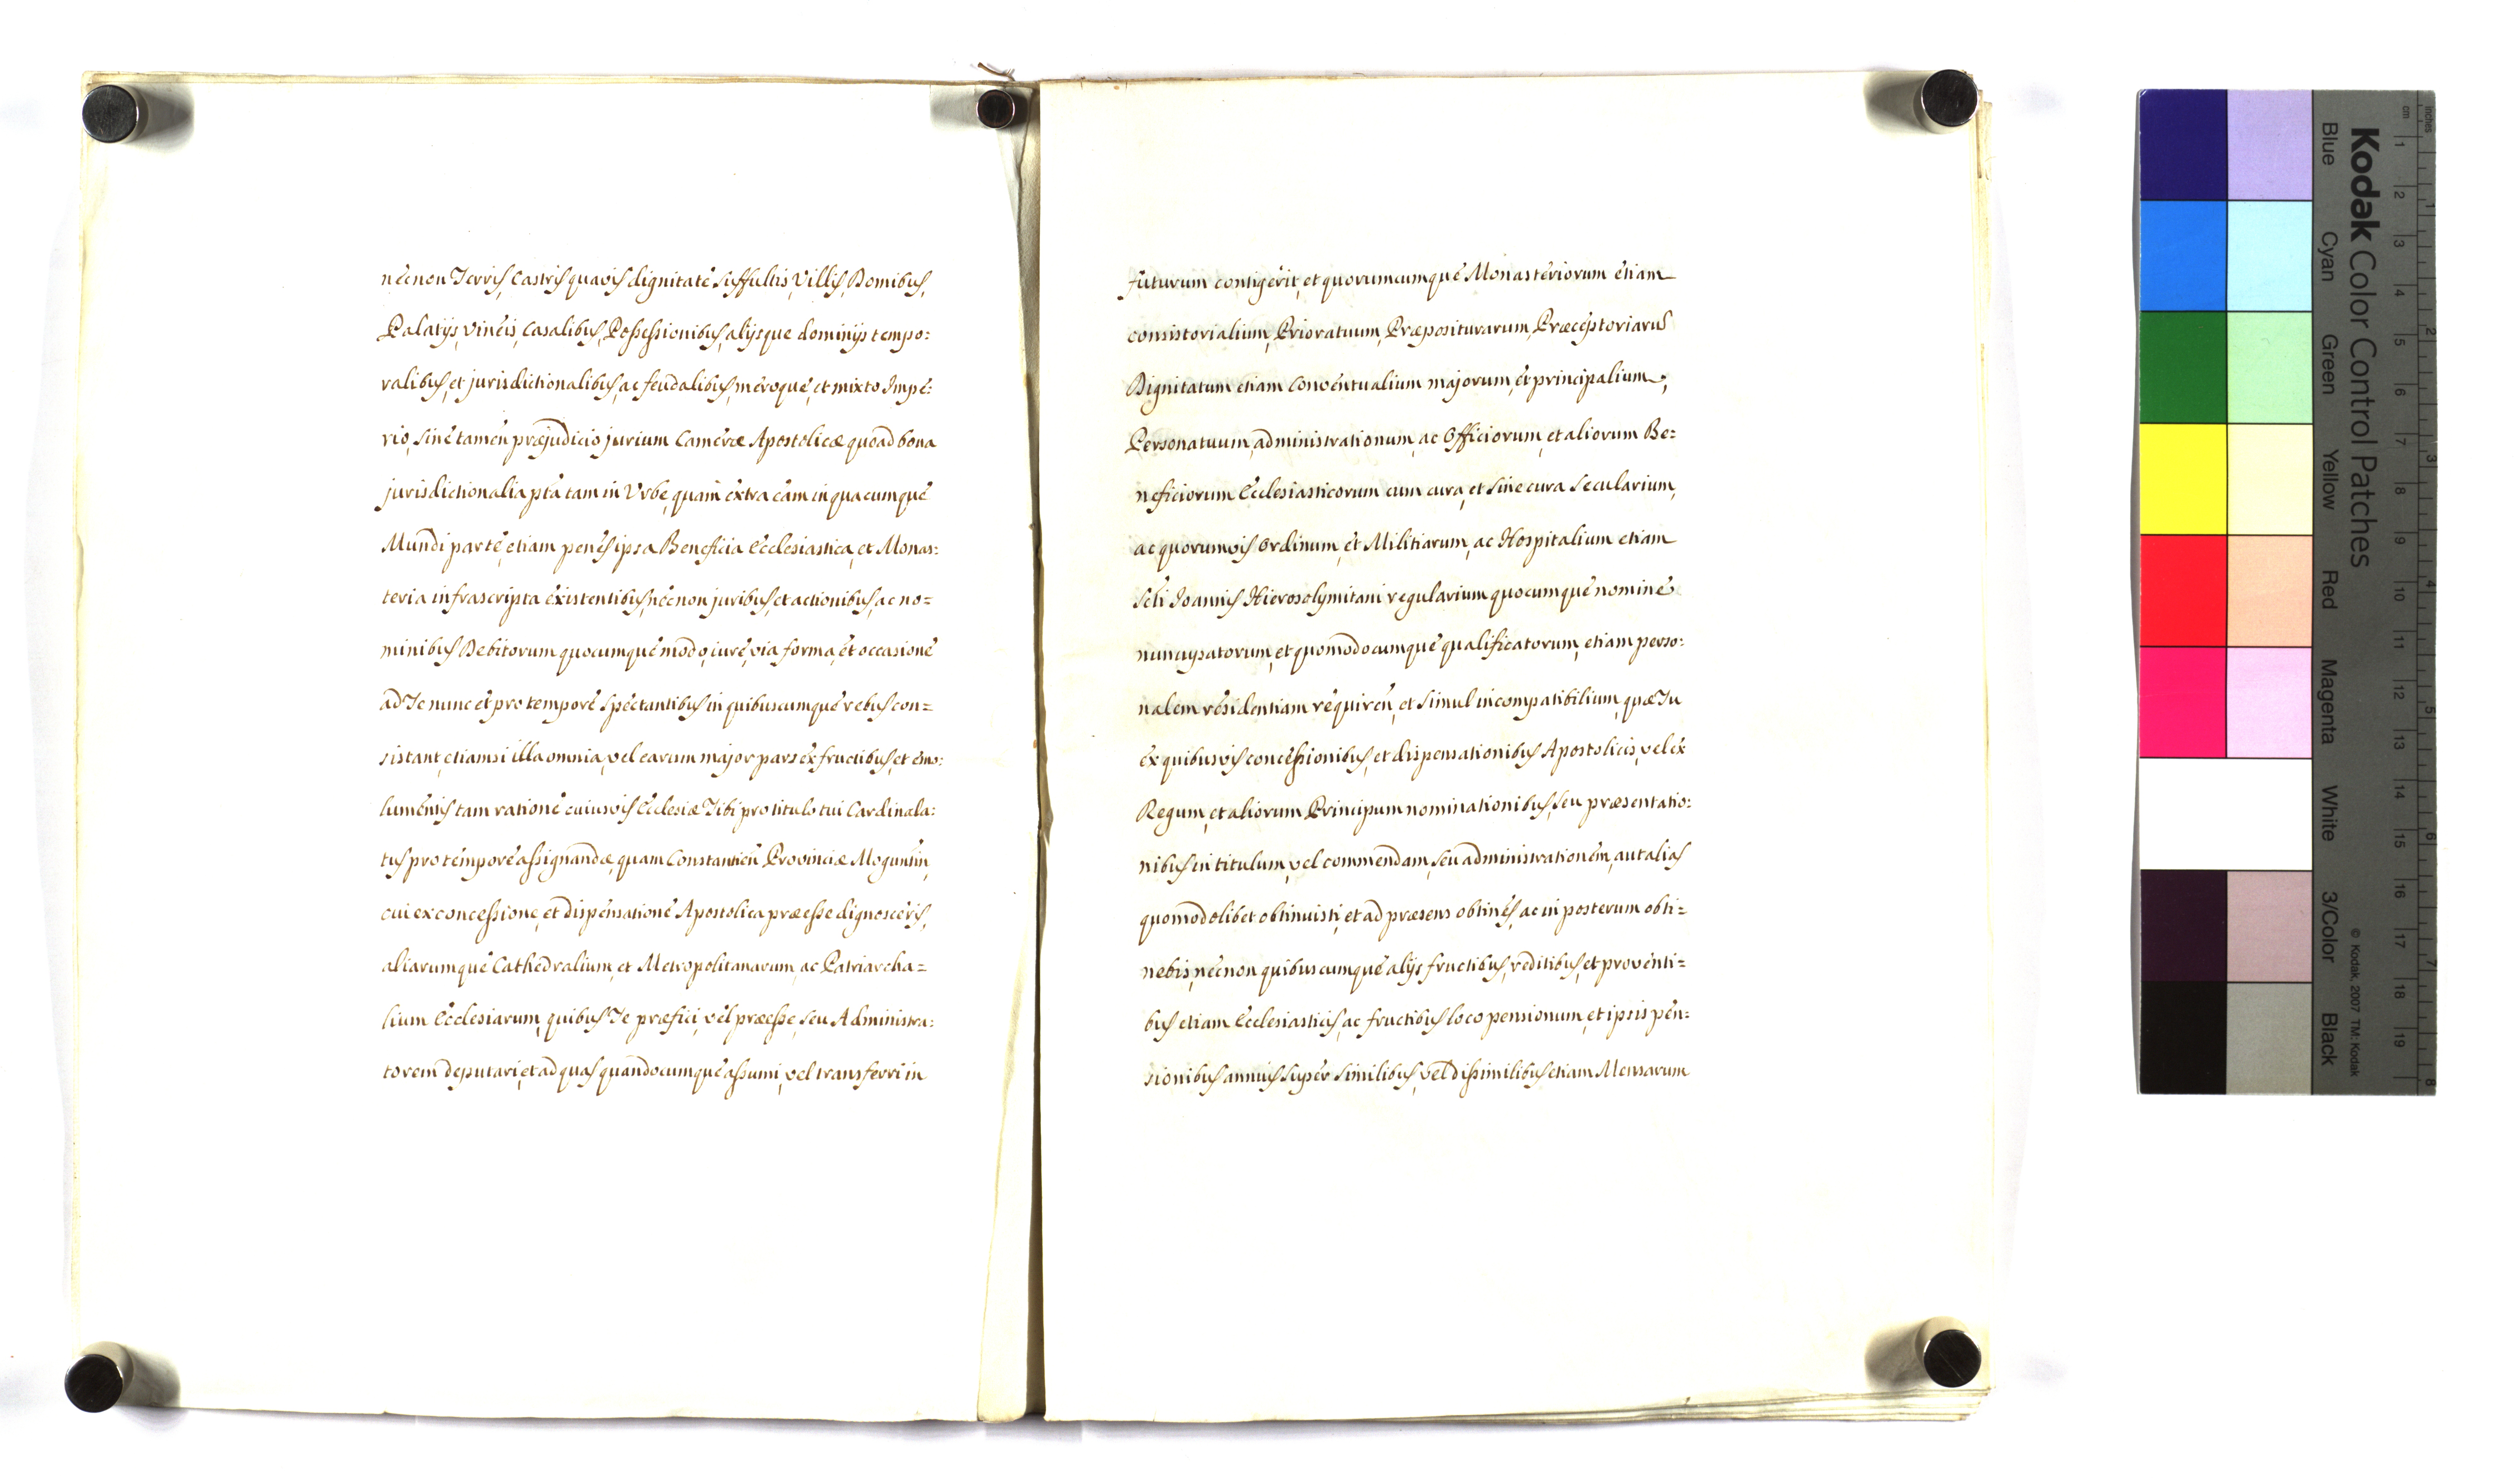 necnon Terris, Castris quavis dignitate suffultis, Villis, Domibus,
Palatijs, vineis, Casalibus, Possessionibus, alijsque dominijs tempo=
ralibus, et jurisdictionalibus, ac feudalibus, meroque, et mixto Impe=
rio, sine tamen præjudicio jurium Cameræ Apostolicæ quoad bona
jurisdictionalia pta tam in Urbe, quam extra eam in quacumque
Mundi parte, etiam penes ipsa Beneficia Ecclesiastica, et Monas=
teria infrascripta existentibus, necnon juribus, et actionibus, ac no=
minibus Debitorum quocumque modo, iure, via forma, et occasione
ad Te nunc et pro tempore spectantibus in quibuscumque rebus con=
sistant, etiamsi illa omnia, vel earum major pars ex fructibus, et emo=
lumentis tam ratione cuiusvis Ecclesiæ Tibi pro titulo tui Cardinala=
tus pro tempore assignandæ, quam Constantien Provinciæ Moguntin,
cui ex concessione, et dispensatione Apostolica præesse dignosceris,
aliarumque Cathedralium, et Metropolitanarum, ac Patriarcha=
lium Ecclesiarum, quibus Te præfici, vel præesse, seu Administra=
torem deputari, et ad quas quandocumque assumi, vel transferri in
futurum contigerit, et quorumcumque Monasteriorum etiam
consistorialium, Prioratuum, Præpositurarum, Præceptoriarum
Dignitatum etiam Conventualium majorum, et principalium,
Personatuum, administrationum, ac Officiorum, et aliorum Be=
neficiorum Ecclesiasticorum cum cura, et sine cura secularium,
ac quorumvis Ordinum, et Militiarum, ac Hospitalium etiam
Scti Joannis Hierosolymitani regularium quocumque nomine
nuncupatorum, et quomodocumque qualificatorum, etiam perso=
nalem residentiam requiren, et simul incompatibilium, quæ Tu
ex quibusvis concessionibus, et dispensationibus Apostolicis, vel ex
Regum, et aliorum Principum nominationibus, seu præsentatio=
nibus in titulum, vel commendam, seu administrationem, aut alias
quomodolibet obtinuisti, et ad præsens obtines, ac in posterum obti=
nebis, necnon quibuscumque alijs fructibus, reditibus, et proventi=
bus etiam Ecclesiasticis, ac fructibus loco pensionum, et ipsis pen=
sionibus annuis super similibus, vel dissimilibus etiam Mensarum
inches
cm
1 2 3 4 5 6 7 8 9 10 11 12 13 14 15 16 17 18 19
1 2 3 4 5 6 7 8
Kodak Color Control Patches
© Kodak, 2007 TM: Kodak
Blue Cyan Green Yellow Red Magenta White 3/Color Black